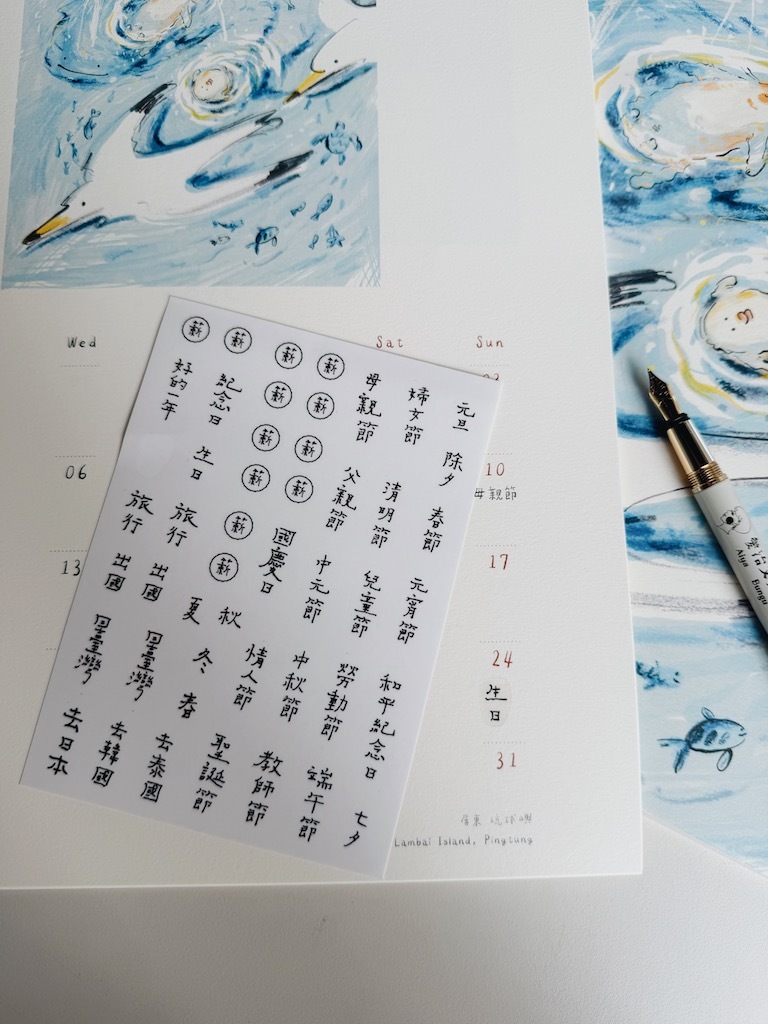 Wed
Sat
Sun
06
10
母親節
13
17
24
生日
31
屏東 琉球嶼
Lambai Island, Pingtung
元旦
除夕
春節
元宵節
和平紀念日
七夕
婦女節
清明節
兒童節
勞動節
端午節
母親節
父親節
中元節
中秋節
教師節
薪
薪
薪
薪
薪
薪
薪
薪
薪
薪
薪
薪
國慶日
情人節
聖誕節
秋
夏
冬
春
去泰國
紀念日
生日
旅行
出國
回臺灣
去韓國
好的一年
旅行
出國
回臺灣
去日本